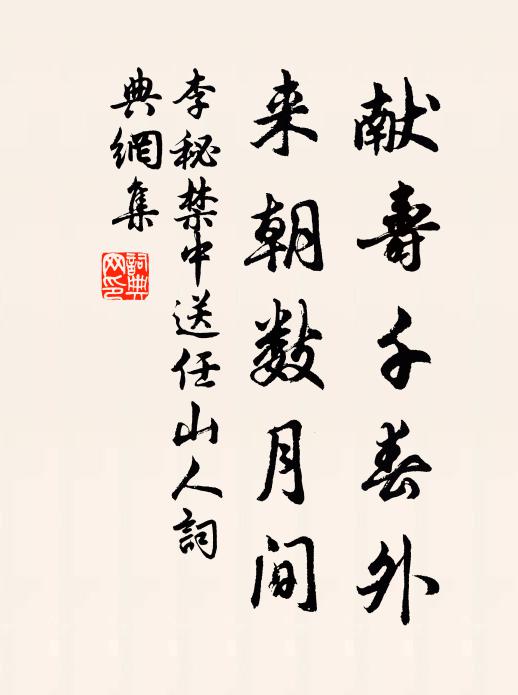 献壽千春外
来朝数月間
李秘禁中送任山人詞
典網集
詞典
网印